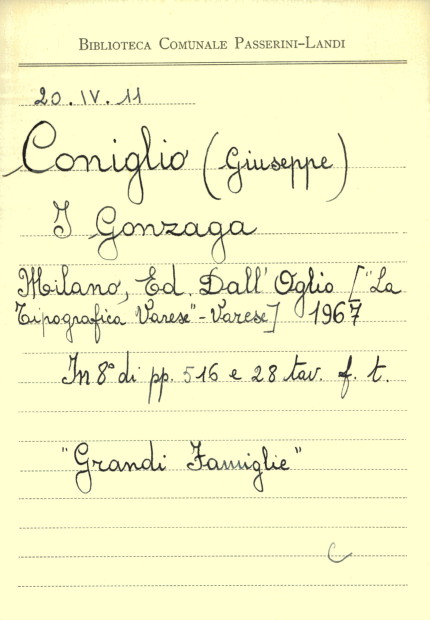 BIBLIOTECA COMUNALE PASSERINI-LANDI
20.IV.11
Coniglio (Giuseppe)
I Gonzaga
Milano, Ed. Dall'Oglio ["La
Tipografica Varese"-Varese] 1967
In 8° di pp. 516 e 28 tav. f. t.
"Grandi Famiglie"
C